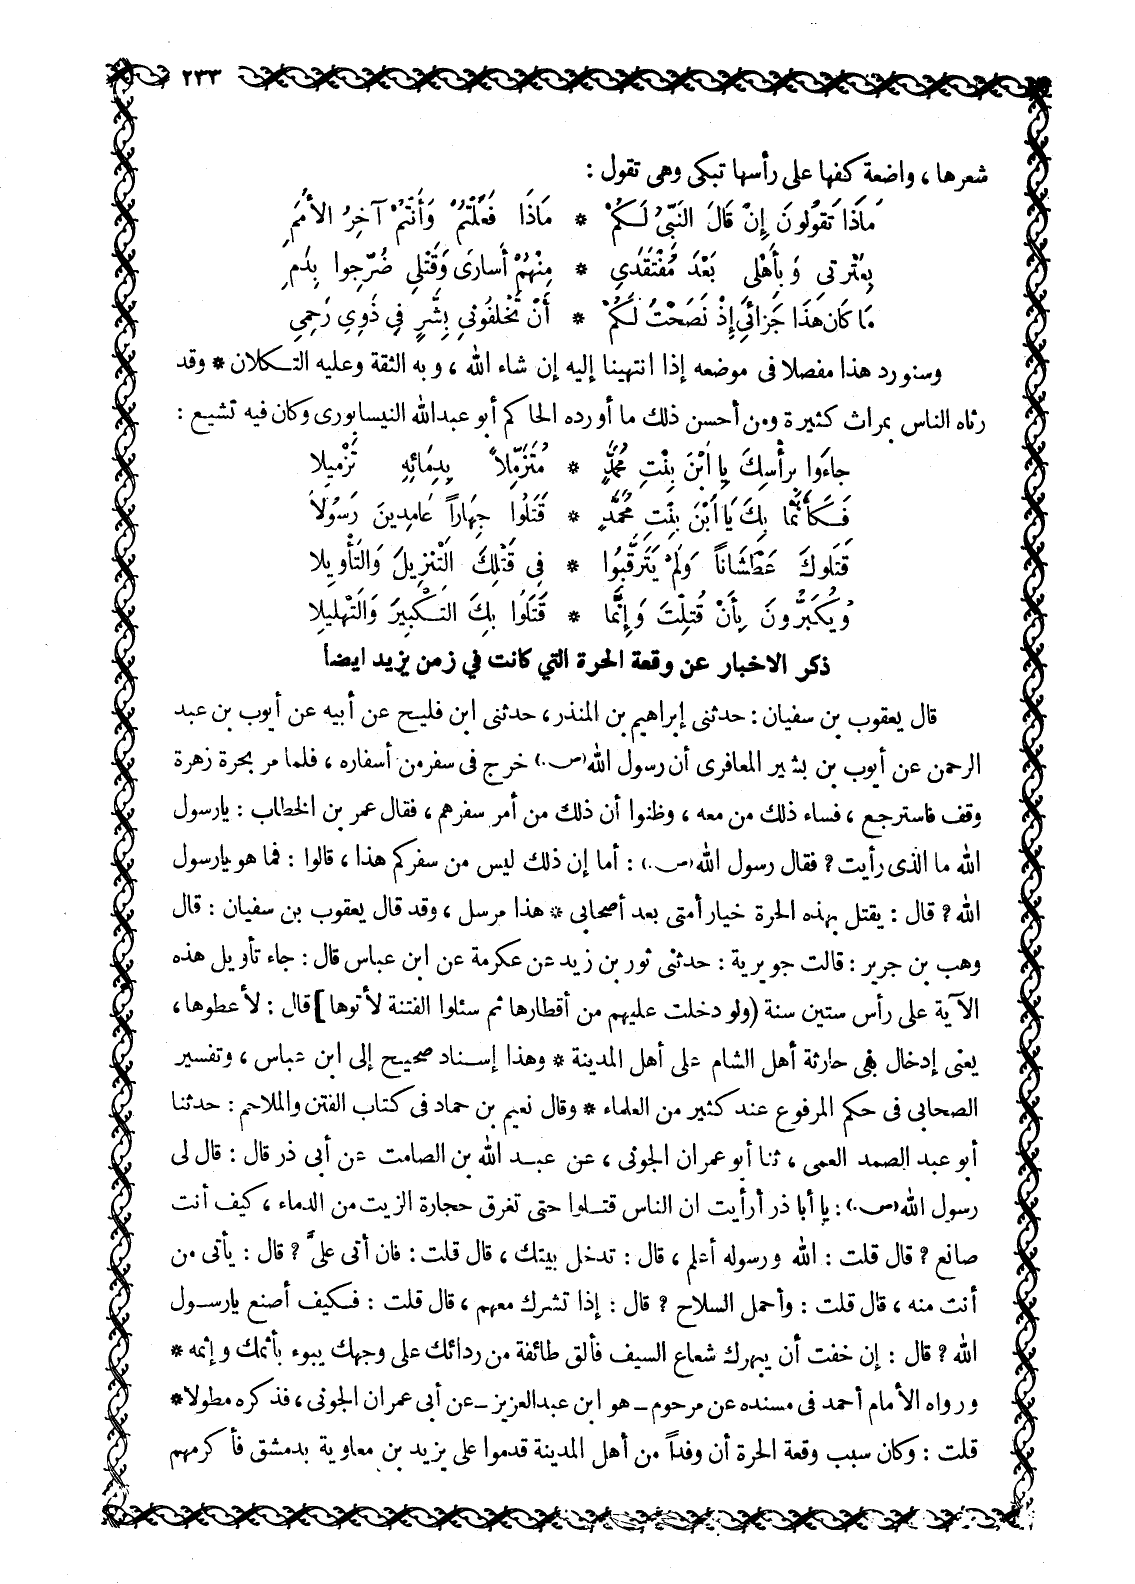 ٢٣٣
شعرها ، واضعة كفها على رأسها تبكى وهى تقول :
مَاذَا تَقُولُونَ إِنْ قَالَ النَّبِىُّ لَكُمْ * مَاذَا فَعَلْتُمْ وَأَنْتُمْ آخِرُ الأُمَمِ
بِعِتْرَتِي وَبِأَهْلِى بَعْدَ مُفْتَقَدِي * مِنْهُمْ أُسارَى وَقَتْلى ضُرِّجوا بِدَمِ
مَا كانَ هَذَا جَزَائِي إِذْ نَصَحْتُ لَكُمْ * أَنْ تَخْلفُونِي بِشَرٍّ فِي ذَوِي رَحِمِي
وسنورد هذا مفصلا فى موضعه إذا انتهينا إليه إن شاء الله ، وبه الثقة وعليه التـكلان * وقد
رثاه الناس بمراث كثيرة ومن أحسن ذلك ما أورده الحاكم أبو عبدالله النيسابورى وكان فيه تشيع :
جاءَوا برأْسِكَ يا ابْنَ بِنْتِ مُحَمَّدٍ * مُتَزَمِّلاً بِدِمَائِهِ تَزْمِيلا
فَـكَأَنَّمَا بِكَ يَا ابْنَ بِنْتِ مُحَمَّدٍ * قَتَلُوا جِهَاراً عَامِدِينَ رَسُولاَ
قَتَلوكَ عَطْشَاناً وَلَمْ يَتَرقَّبُوا * فِى قَتْلِكَ التَنْزِيلَ وَالتَأْوِيلا
وَيُكَبِّرُونَ بِأَنْ قُتِلْتَ وَإِنَّمَا * قَتَلُوا بِكَ التـكْبِيرَ وَالتَهْلِيلا
ذكر الاخبار عن وقعة الحرة التي كانت في زمن يزيد ايضا
قال يعقوب بن سفيان : حدثنى إبراهيم بن المنذر ، حدثنى ابن فليح عن أبيه عن أيوب بن عبد
الرحمن عن أيوب بن بشير المعافرى أن رسول الله (ص.) خرج فى سفر من أسفاره ، فلما مر بحرة زهرة
وقف فاسترجع ، فساء ذلك من معه ، وظنوا أن ذلك من أمر سفرهم ، فقال عمر بن الخطاب : يارسول
الله ما الذى رأيت ? فقال رسول الله (ص.) : أما إن ذلك ليس من سفركم هذا ، قالوا : فما هو يارسول
الله ? قال : يقتل بهذه الحرة خيار أمتى بعد أصحابى * هذا مرسل ، وقد قال يعقوب بن سفيان : قال
وهب بن جرير : قالت جويرية : حدثنى ثور بن زيد عن عكرمة عن ابن عباس قال : جاء تأويل هذه
الآية على رأس ستين سنة (ولو دخلت عليهم من أقطارها ثم سئلوا الفتنة لأتوها] قال : لأعطوها ،
يعنى إدخال بنى حارثة أهل الشام على أهل المدينة * وهذا إسناد صحيح إلى ابن عباس ، وتفسير
الصحابى فى حكم المرفوع عند كثير من العلماء * وقال نعيم بن حماد فى كتاب الفتن والملاحم : حدثنا
أبو عبد الصمد العمى ، ثنا أبو عمران الجونى ، عن عبـد الله بن الصامت عن أبى ذر قال : قال لى
رسول الله (ص.) : يا أبا ذر أرأيت ان الناس قتـلوا حتى تغرق حجارة الزيت من الدماء ، كيف أنت
صانع ? قال قلت : الله ورسوله أعلم ، قال : تدخل بيتك ، قال قلت : فان أتى علىَّ ? قال : يأتى من
أنت منه ، قال قلت : وأحمل السلاح ? قال : إذا تشرك معهم ، قال قلت : فـكيف أصنع يارسـول
الله ? قال : إن خفت أن يبهرك شعاع السيف فألق طائفة من ردائك على وجهك يبوء بأثمك وإثمه *
ورواه الأمام أحمد فى مسنده عن مرحوم ـ هو ابن عبدالعزيز ـ عن أبى عمران الجونى ، فذكره مطولا *
قلت : وكان سبب وقعة الحرة أن وفداً من أهل المدينة قدموا على يزيد بن معاوية بدمشق فأكرمهم